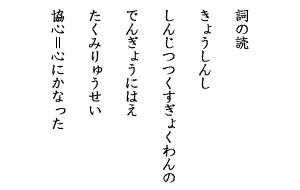 詞の読
きょうしんし
しんじつつくすぎょくわんの
でんぎょうにはえ
たくみりゅうせい
協心＝心にかなった